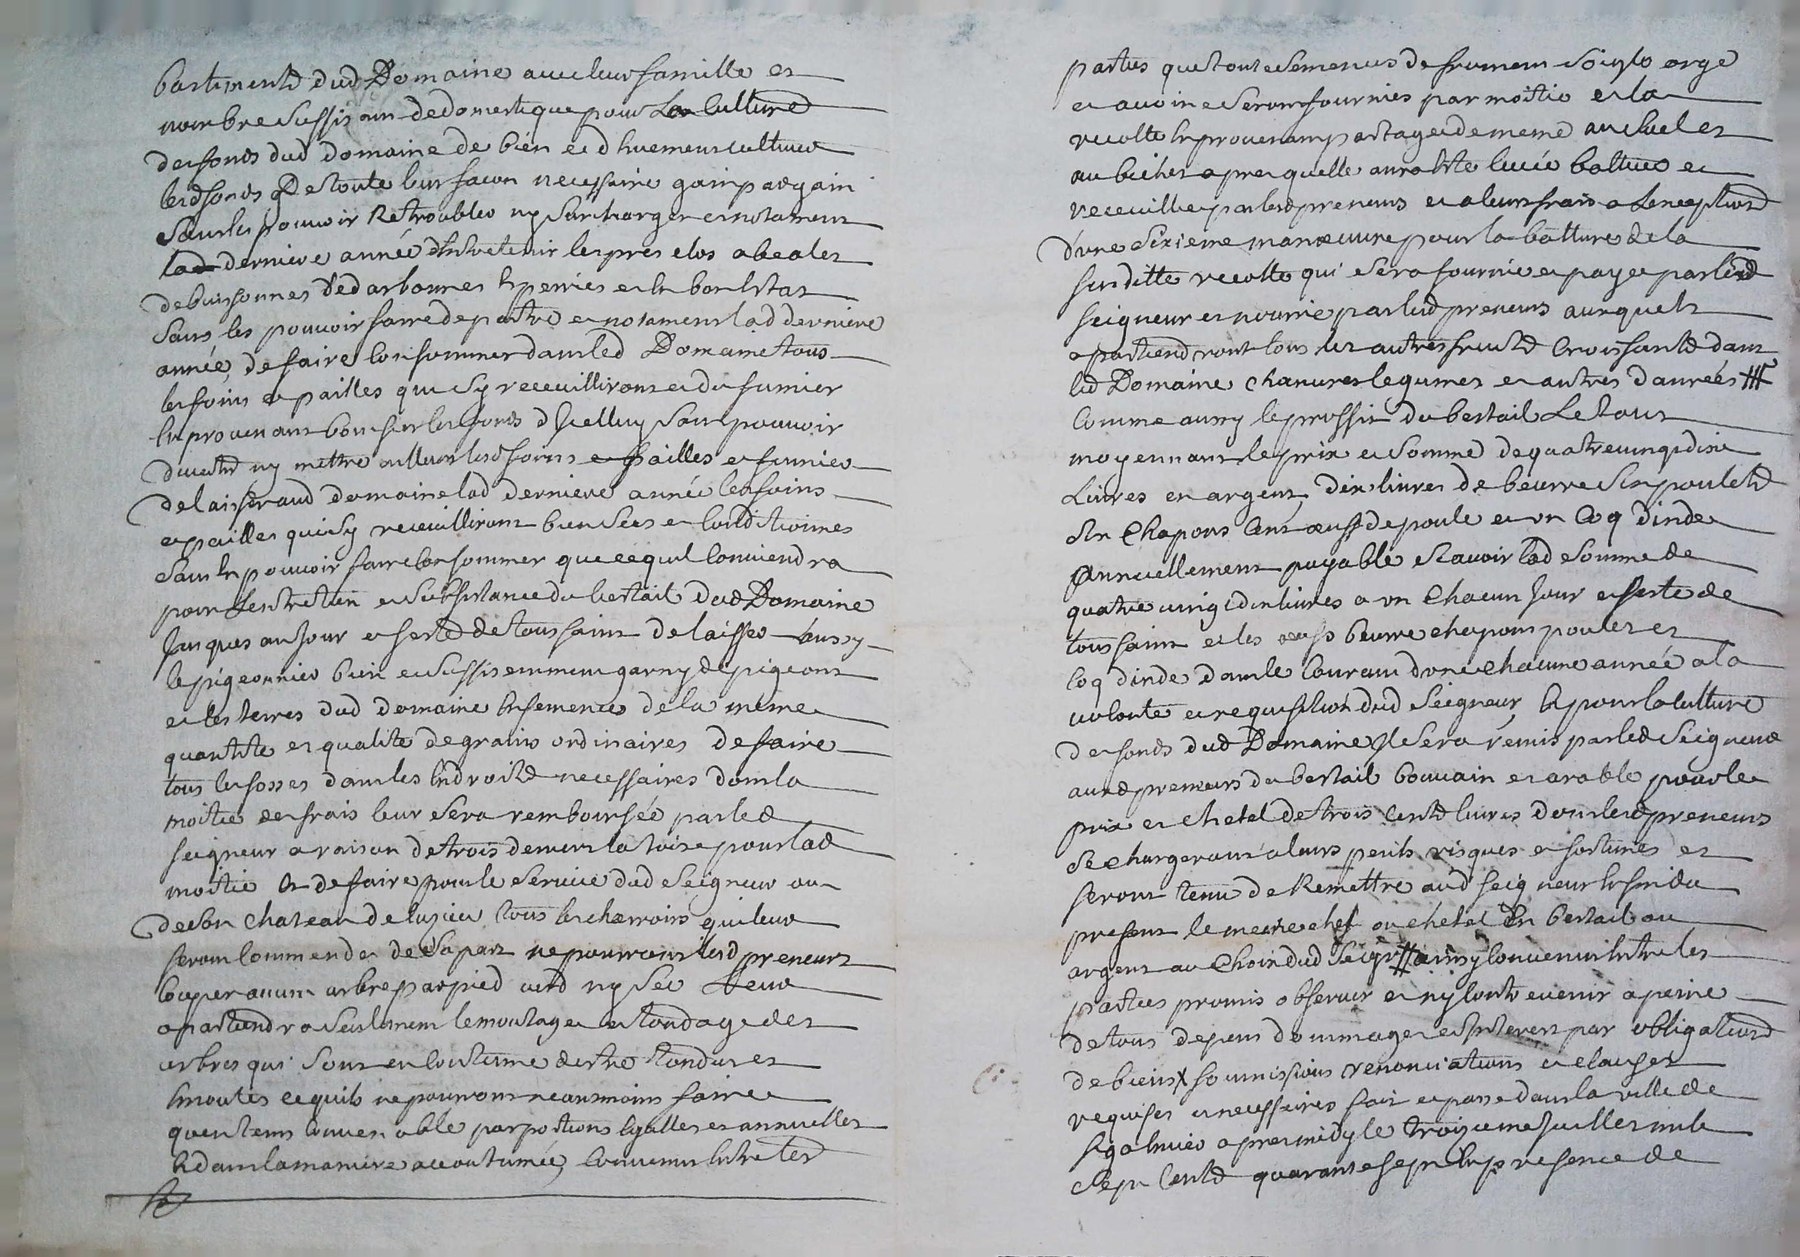 bastiments dud Domaine avec leur famille et
nombre suffisan de domestique pour La Culture
des fonds dud Domaine de bien et d huement cultiver
lesd fonds De toute leur facon necessaire gain par gain
sans les pouvoir Retroubler ny surcharger et notament
lad derniere année d'Entretenir les pres clos abeales
debuissonnes d'edarbonnes Enperries et En bon Estat
sans les pouvoir faire depaitre et notament lad derniere
année, de faire Consommer dans led Domaine tous
les foins et pailles qui sy receuilliront et du fumier
En provenant bon sur les fonds d Icelluy sans pouvoir
divertir ny mettre ailleurs lesd foins et pailles et fumier
de laisser aud domaine lad derniere année les foins
et pailles qui sy receuilliront bien secs et Conditionnes
sans En pouvoir faire Consommer que ce quil Conviendra
pour Lentretien et subsistance du bestail dud Domaine
Jusques au Jour et feste de toussaint de laisser aussy
le pigeonnier bien et suffisemment garny de pigeons
et les terres dud domaine Ensemences de la meme
quantite et qualite de grains ordinaires de faire
tous les fosses dans les Endroits necessaires dont la
moitie des frais leur sera remboursée par led
seigneur a raison de trois deniers la toise pour lad
moitie Et de faire pour le service dud seigneur ou
de son chateau de tous les charrois qui leur
seront Commendes de sa part ne pourront lesd preneurs
couper aucun arbre par pied verd ny sec Leur
apartiendra seulement lemontage et tondage des
arbres qui sont en Coutume destre tondus et
Emoutes ce quils ne pourront neansmoins faire
quen tems Convenable par portions Egalles et annuelles
Et dans la maniere accoutumée, Convenu Entre les
parties que toute semences de froment seigle orge
et avoine seront fournies par moitie et la
recolte En provenant partagee de meme au cheel et
au bichet apres quelle aura Este levée battue et
receuillie par lesd preneurs et a leurs frais a Lexception
d'une sixieme manoeuvre pour la batture de la
susditte recolte qui sera fournie et payee par led
seigneur et nourrie par lesd preneurs auxquels
apartiendront tous les autres fruits Croissants dans
led Domaine chanvres legumes et autres danrées
Comme aussy le proffit du bestail Le tout
moyennant le prix et somme de quatre vingt dix
Livres en argent dix livres de beurre six poulets
six Chapons Cent oeufs de poule et un Coq dinde
Annuellement payable scavoir lad somme de
quatre vingt dix livres a un Chacun Jour et feste de
toussaint et les oeufs beurre chapons poulet et
Coq dinde dans le Courant d'une chacune année a la
volonte et requisition dud seigneur, Et pour la Culture
des fonds dud Domaine Il sera remis par led seigneur
auxd preneurs du bestail bouvain et arable pour le
prix et chetel de trois cents livres dont lesd preneurs
se chargeront a leurs perils risques et fortunes et
seront tenu de Remettre aud seigneur En fin du
present le meme chef ou chetel En bestail ou
argent au Choix dud seigr ainsy Convenu Entre les
parties promis observer et ny Contrevenir a peine
de tous depens dommages et Interest par obligations
de biens soumissions renonciations et clauses
requises et necessaires fait et passe dans la ville de
apres midy le troizieme Juillet mil
sept Cents quarante sept En presence de